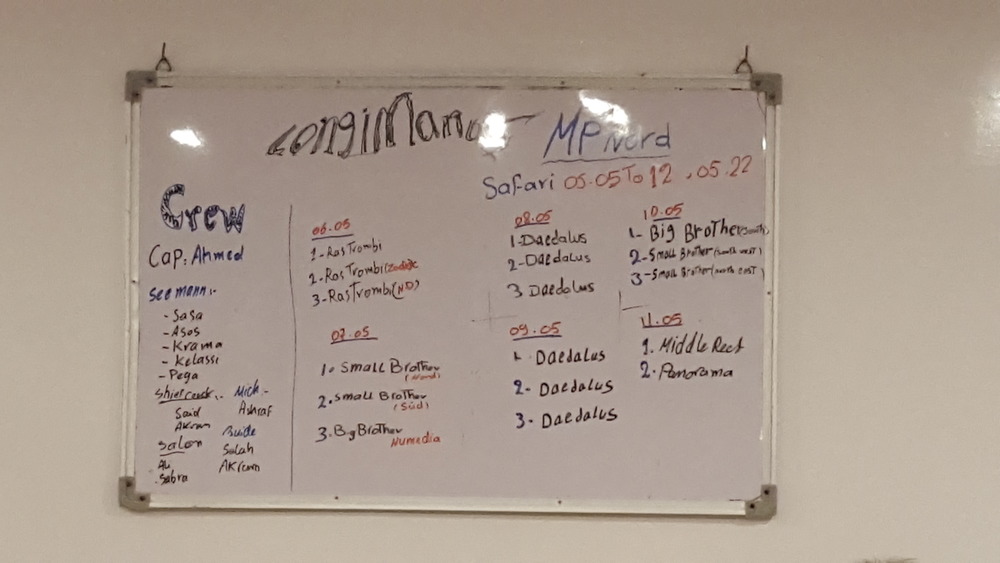 Longimanus
MP Nord
Safari 05.05 To 12.05.22
Crew
Cap: Ahmed
Seemann:-
- Sasa
- Asos
- Krama
- Kelassi
- Pega
Said
Akram
Salon
Ali
. Sabra
Mich.-
Ashraf
Guide
Salah
Akram
06.05
1- Ras Trombi
2- Ras Trombi (Zodiac
3- Ras Trombi (ND)
07.05
1. Small Brother
(Nord)
2. Small Brother
(Süd)
3. Big Brother
Numedia
08.05
1- Daedalus
2- Daedalus
3 Daedalus
09.05
1. Daedalus
2- Daedalus
3- Daedalus
10.05
1- Big Brother (South)
2- Small Brother (South west)
3- Small Brother (south east)
11.05
1. Middle Reef
2. Panorama